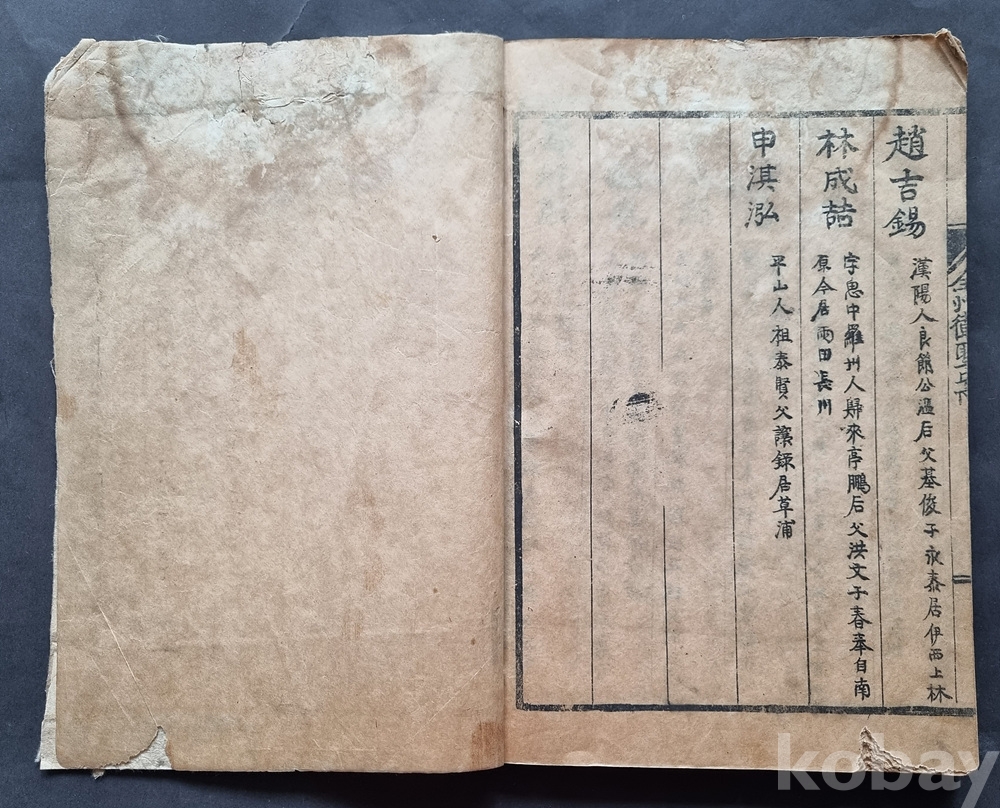 趙吉錫
漢陽人良節公溫后父基俊子永泰居伊西上林
林成喆
字思中羅州人歸來亭鵬后父洪文子春奉自南
原今居雨田長川
申淇泓
平山人祖泰賢父讓錄居草浦
全州
kobay